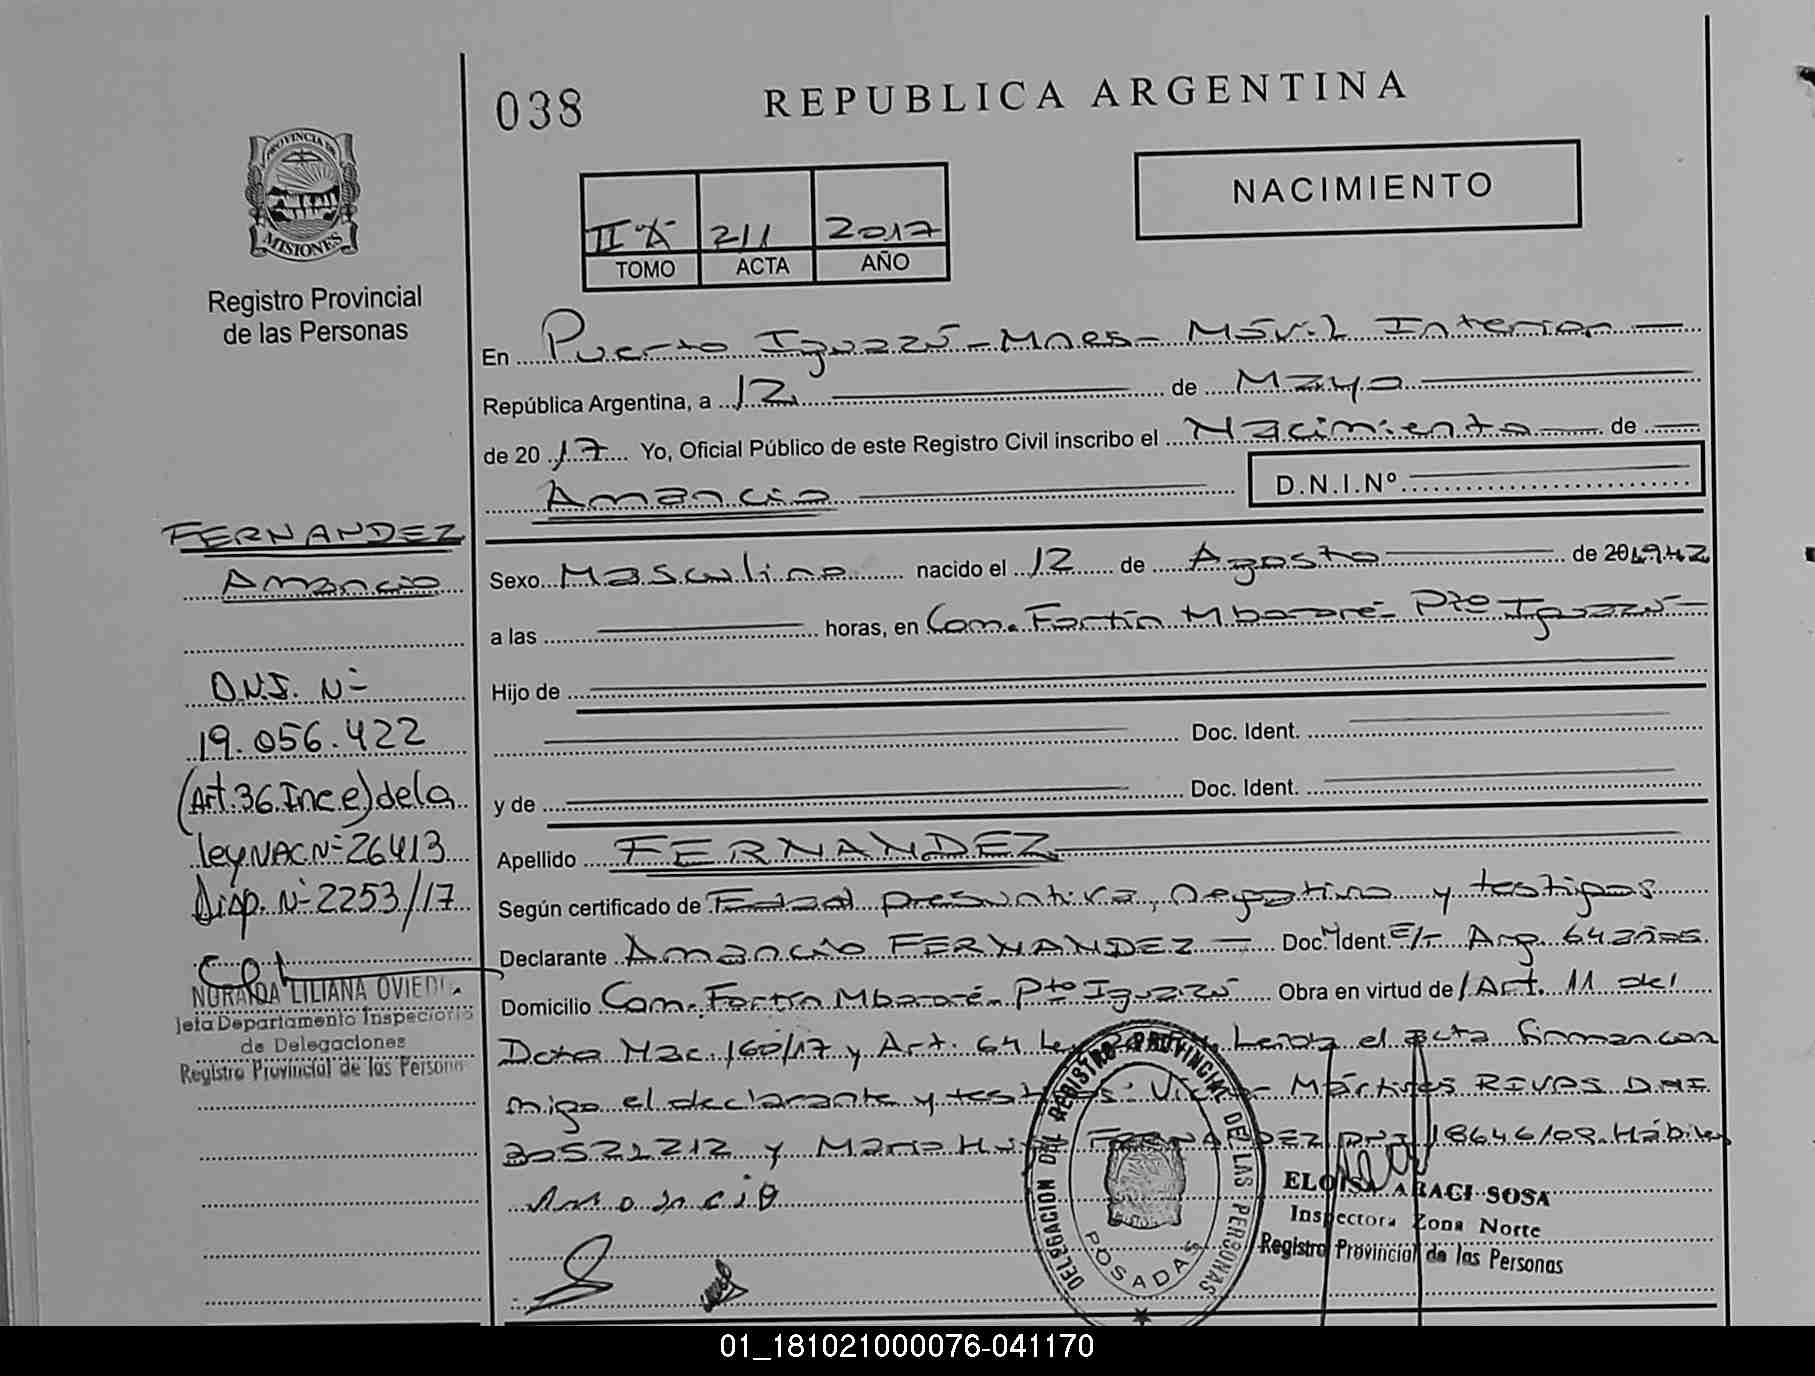 038
REPUBLICA ARGENTINA
NACIMIENTO
PROVINCIA DE
MISIONES
Registro Provincial
de las Personas
II A 211 2017
TOMO ACTA AÑO
En Puerto Iguazú - Mnes - Móvil Interior
República Argentina, a 12 de Mayo
de 2017 Yo, Oficial Público de este Registro Civil inscribo el Nacimiento de
Amancio D.N.I.Nº
Sexo Masculino nacido el 12 de Agosto de 201942
a las horas, en Com. Fortín Mbororé - Pto Iguazú
Hijo de
Doc. Ident.
y de Doc. Ident.
Apellido FERNANDEZ
Según certificado de Edad presuntiva, negativo y testigos
Declarante Amancio FERNANDEZ Doc. Ident. E/T Arg
Domicilio Com. Fortín Mbororé - Pto Iguazú Obra en virtud de Art. 11 del
Dcto Nac. 160/17 y Art. 64 Leída el acta firman con
migo el declarante y testigos: Mártires RIVAS DNI
30521212 y Mario FERNANDEZ Hábiles
Amancio
FERNANDEZ
Amancio
D.N.I. N-
19.056.422
(Art.36.Inc e) de la
ley NAC N- 26413
Disp. N- 2253/17
NORAIDA LILIANA OVIEDO
Jefa Departamento Inspectoria
de Delegaciones
Registro Provincial de las Personas
DELEGACION DEL REGISTRO PROVINCIAL DE LAS PERSONAS
POSADAS
ELOISA ARACI SOSA
Inspectora Zona Norte
Registro Provincial de las Personas
01_181021000076-041170